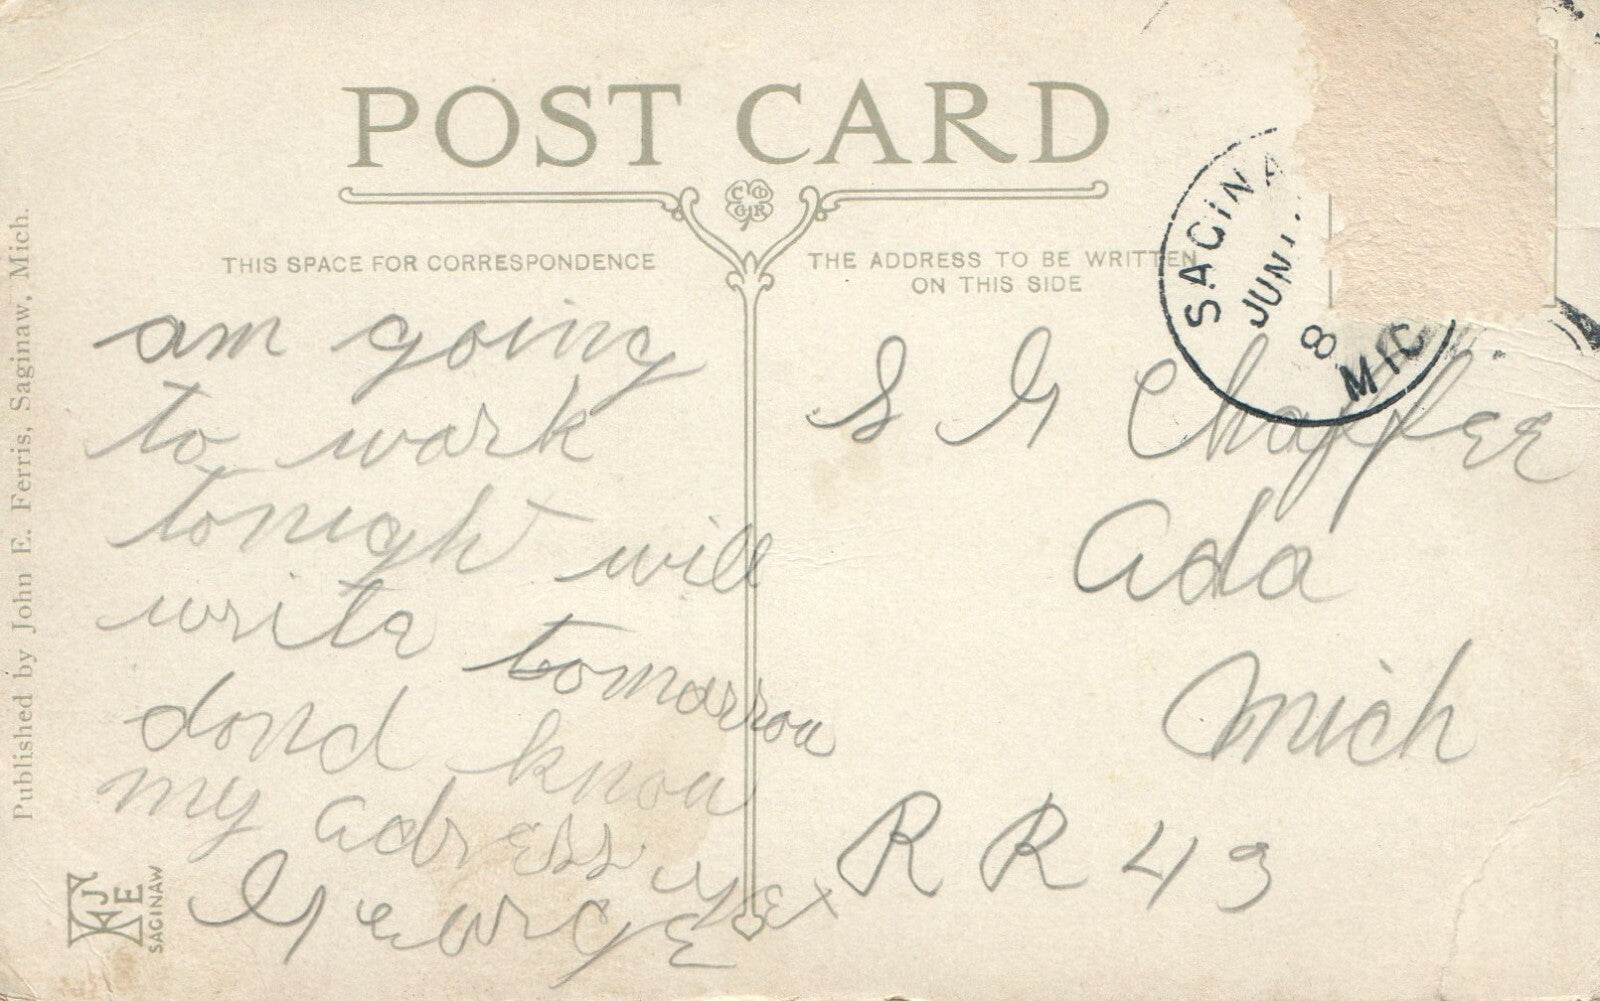 POST CARD
THIS SPACE FOR CORRESPONDENCE
am going
to work
tonight will
write tomarrow
dond know
my adress yet
George
THE ADDRESS TO BE WRITTEN
ON THIS SIDE
S G Chaffee
Ada
Mich
R R 43
SAGINA
JUN
8
MIC
Published by John E. Ferris, Saginaw, Mich.
SAGINAW